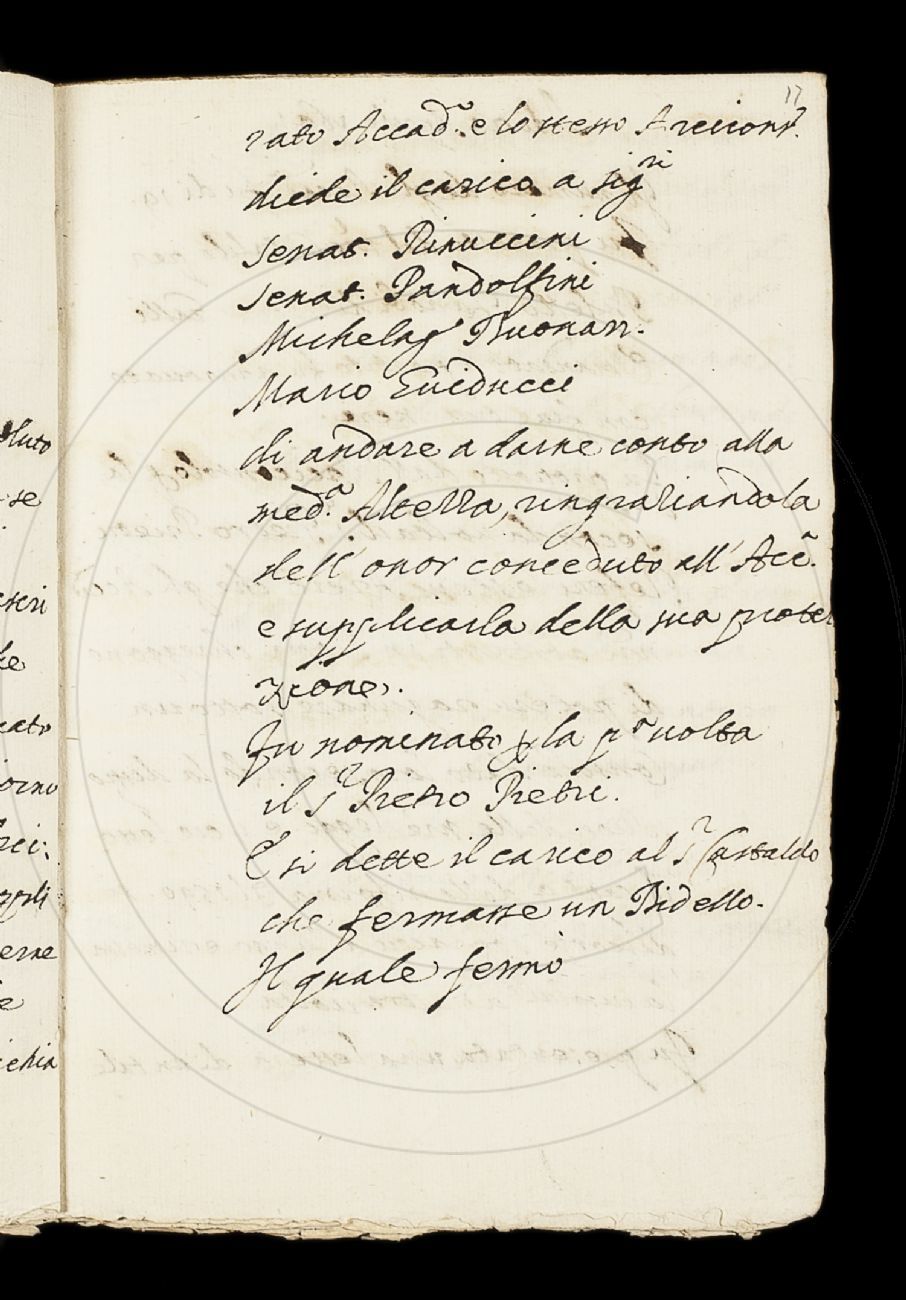 17
rato Accad.ᵉ e lo stesso Arcicons.º
diede il carico a sig.ri
Senat. Rinuccini
Senat. Pandolfini
Michelag.º Buonarr.
Mario Guiducci
di andare a darne conto alla
med.ª Altezza, ringraziandola
dell' onor conceduto all' Acc.
e supplicarla della sua prote
zione.
Fu nominato p la p.ª uolta
il S.r Pietro Pietri.
E si dette il carico al S.r Castaldo
che fermasse un Bidello.
Il quale fermò
oluto
se
cato
iorno